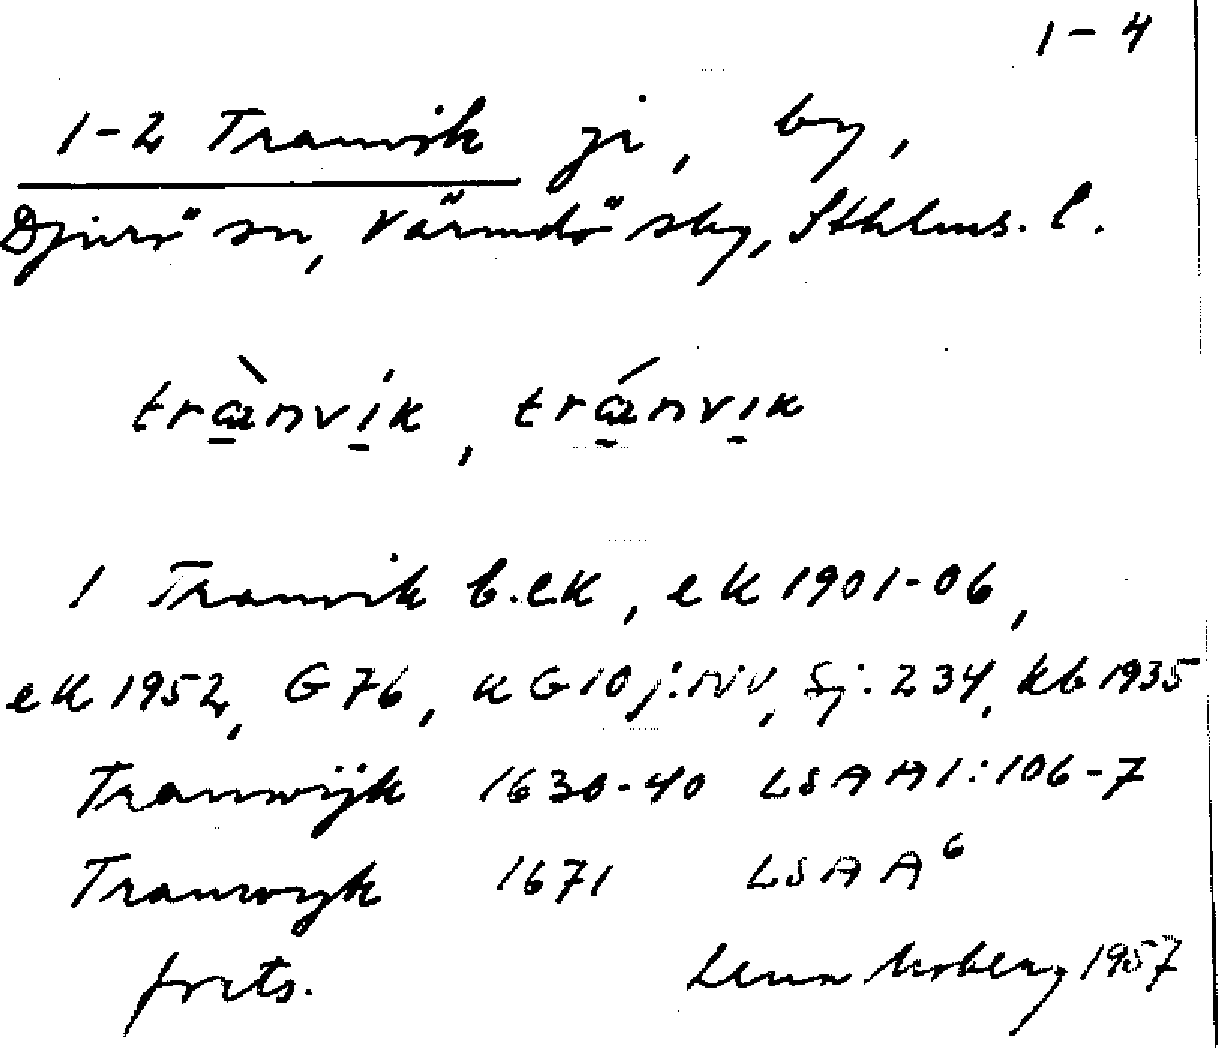 1-4
1-2 Tranvik ji, by,
Djurö sn, Värmdö sky, Sthlms. l.
trànvik, tránvik
1 Tranvik b. ek, ek 1901-06,
ek 1952, G 76, k G 10 j: NV, Sj: 234, kb 1935
Tranwijk 1630-40 LSA A1:106-7
Tranwyk 1671 LSA A⁶
forts. 1957